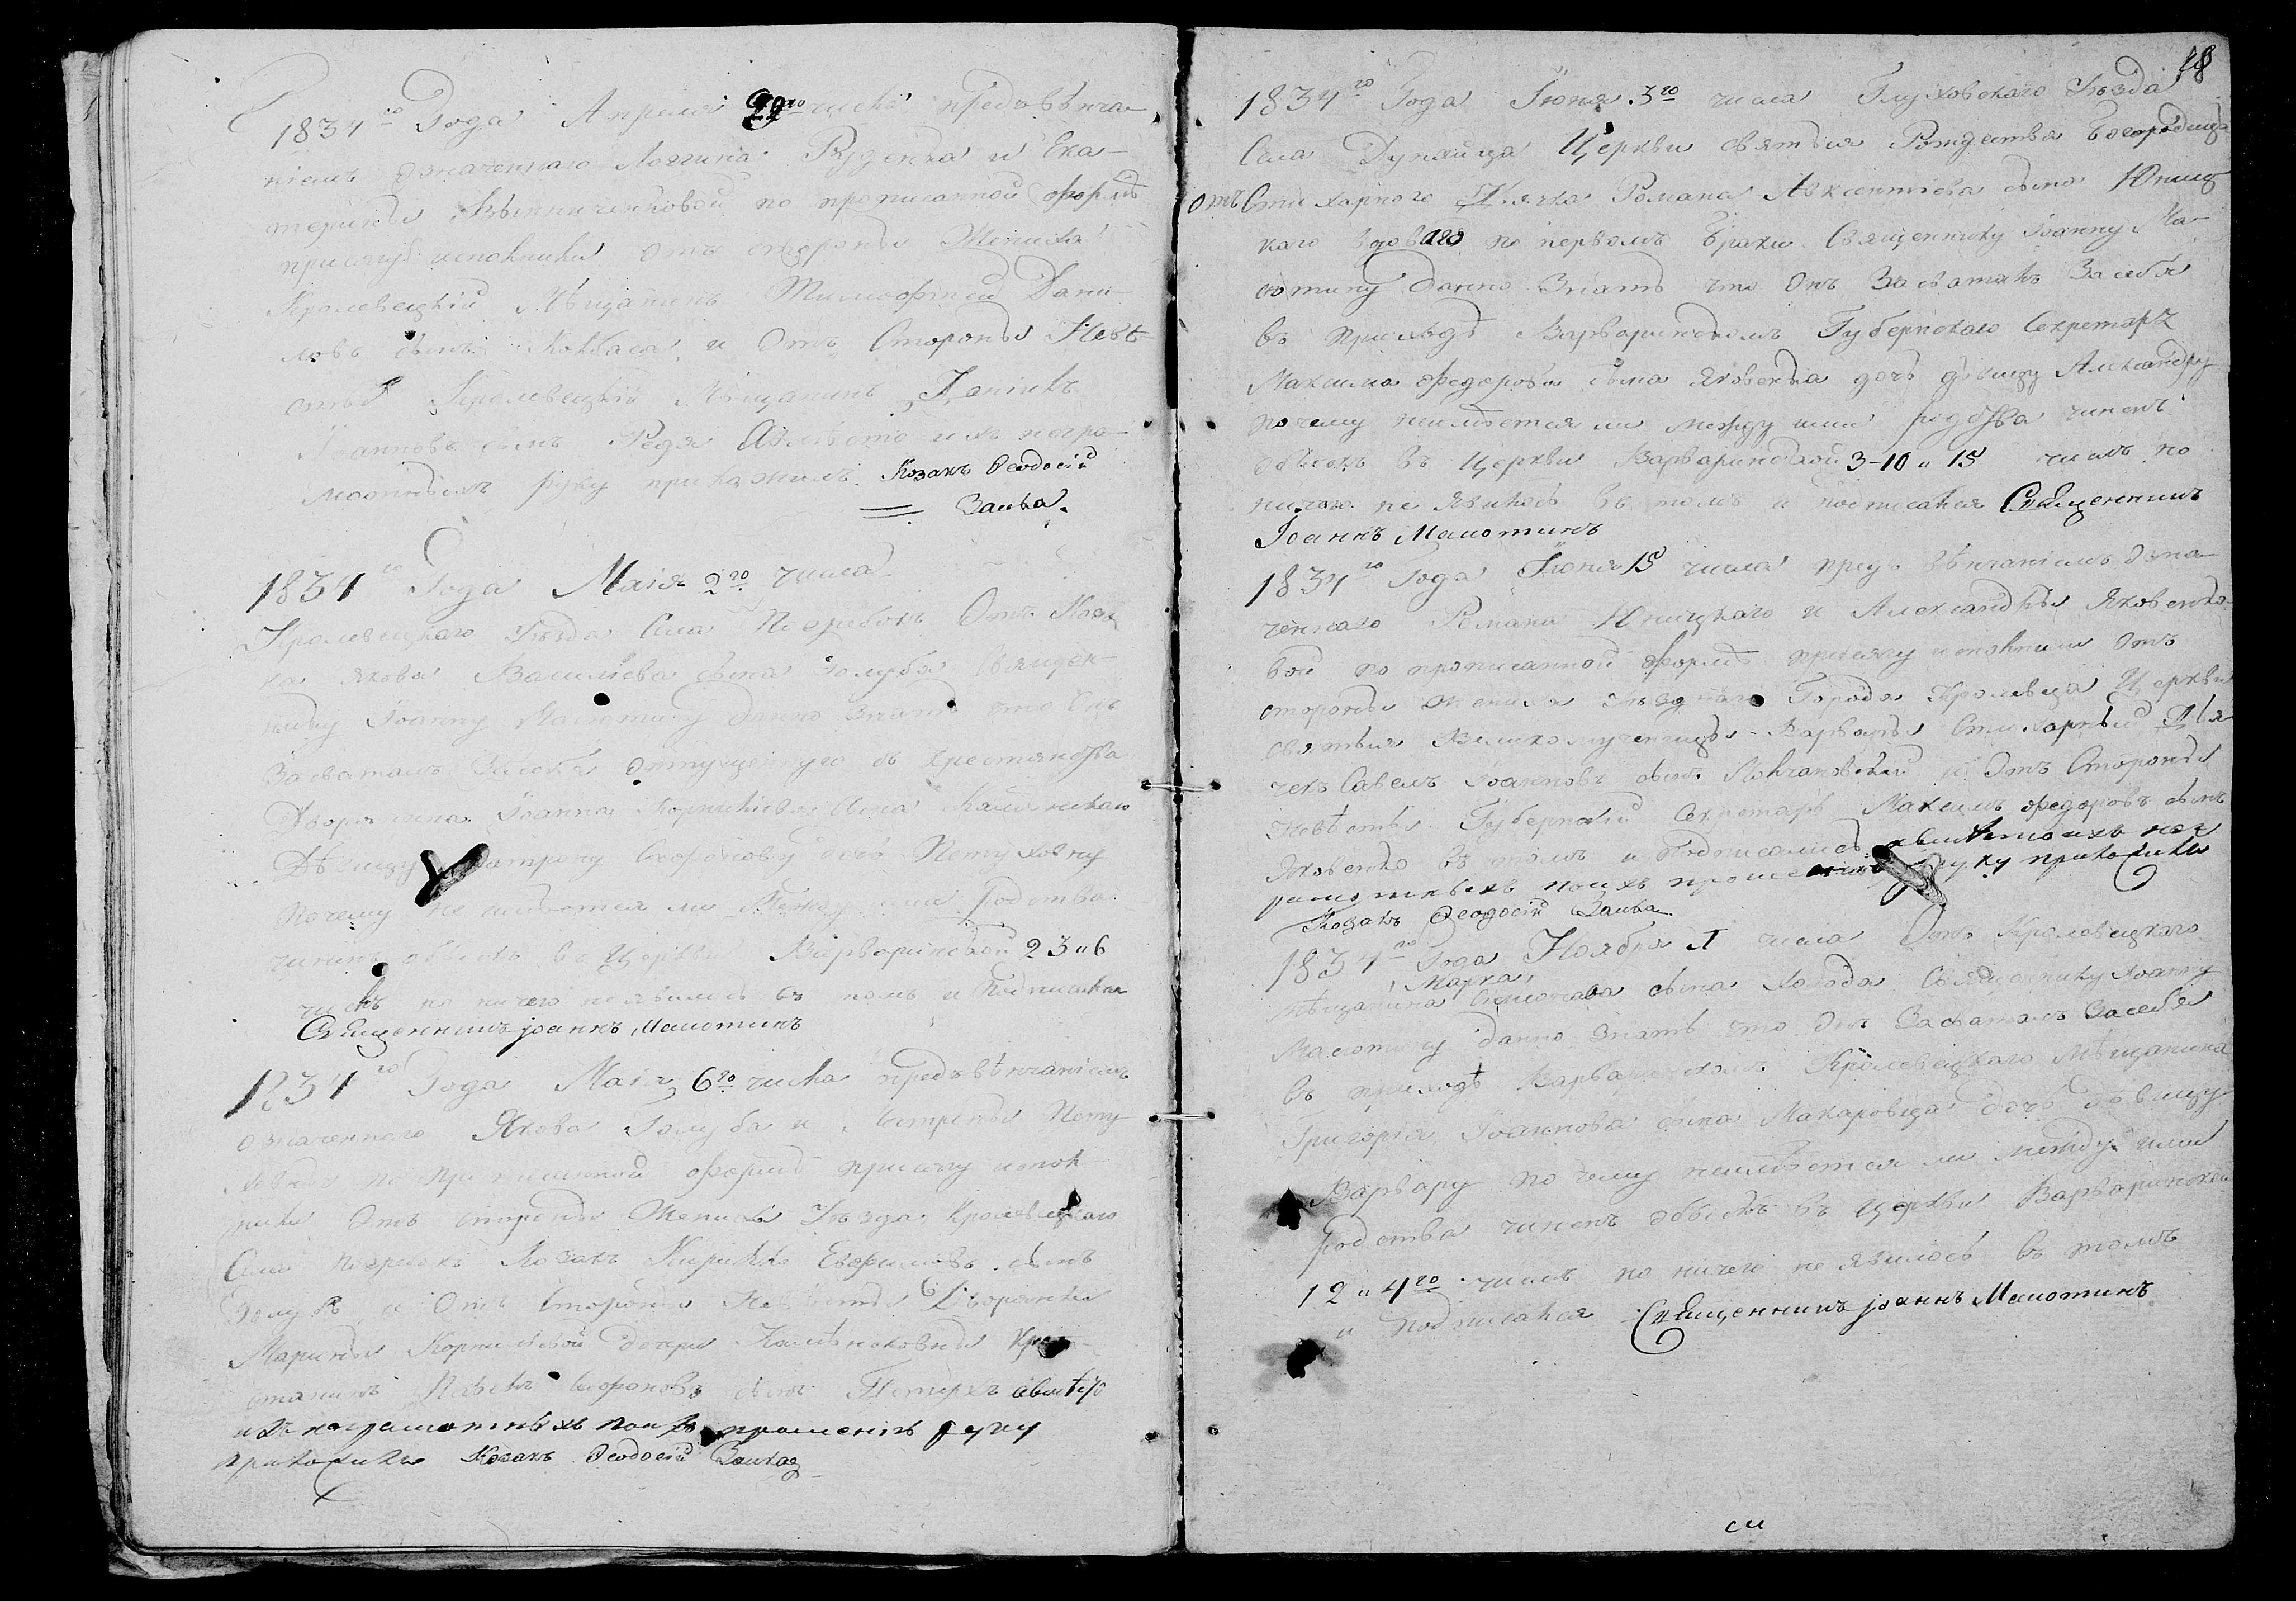 1834го Года Апреля 29го числа предъ вѣнча-
ніемъ означенного Логгина Руденка и Ека-
терины по прописанной формѣ
присягу исполнили отъ стороны Жениха
Кролевецкій Мѣщанинъ Тимофѣй Дани-
ловъ сынъ Ковбаса, и Отъ Стороны Невѣ-
сты Кролевецкій Мѣщанинъ Даніилъ
Іоанновъ сынъ Редя Авмѣсто ихъ негра-
мотныхъ руку приложилъ Козакъ Ѳеодосій
Заика.
1834го Года Маія 2го числа
Кролевецкого Уѣзда Села Погребокъ Отъ Коза-
ка Якова Василіева сына Голубя Священ-
нику Іоанну Малютину данно знать что Онъ
Засваталъ Засебя отпущенную съ крестьянства
Дворянина Іоанна Корниліева сына
Дѣвицу дочь Петуховну
Почему не имѣется ли Между ими родства
чиненъ обыскъ въ Церкви Варваринской 2 3 и 6
числъ но ничего неявилось въ томъ и Подписался
Священникъ Іоаннъ Малютинъ
1834го Года Маія 6го числа предъ вѣнчаніемъ
означенного Якова Голуба и Пету-
ховны по прописанной формѣ присягу испол-
нили Отъ стороны Жениха Уѣзда Кролевецкого
Села Погребокъ Козакъ Кирилло Евфимовъ сынъ
Голубъ и Отъ Стороны Невѣсты Дворянки
Марины Корниліевой дочери Крес-
тянинъ сынъ Петухъ авмѣсто
ихъ неграмотныхъ поихъ прошенію руку
приложилъ Козакъ Ѳеодосій Заика
18
1834го Года Іюня 3го числа Глуховского Уѣзда
Села Дунайца Церкви святыя Рождества Богородицы
отъ Стихарного Дячка Романа Авксентіева сына Юниц-
кого вдового по первомъ браки Священнику Іоанну Ма-
лютину данно Знать что Онъ Засваталъ Засебя
въ приходѣ Варваринскомъ Губернского Секретаря
Максима Федорова сына Яковенка дочь дѣвицу Александру
почему неимѣется ли между ими родства чиненъ
обыскъ въ Церкви Варваринской 3-10 и 15 числъ но
ничего не явилось въ томъ и подписался Священникъ
Іоаннъ Малютинъ
1834го Года Іюня 15 числа предъ вѣнчаніемъ Озна-
ченного Романа Юницкого и Александры Яковенко-
вой по прописанной формѣ присягу исполнили Отъ
стороны Жениха Уѣздного Города Кролевца Церкви
святыя Великомученицы Варвары Стихарный Дя-
чекъ Савелъ Іоанновъ сынъ и Отъ Стороны
Невѣсты Губернскій Секретарь Максимъ Федоровъ сынъ
Яковенко въ томъ и Подписались авмѣсто ихъ нег-
рамотныхъ поихъ прошенію руку приложилъ
Козакъ Ѳеодосій Заика
1834го Года Ноября 1 числа Отъ Кролевецкого
Марка
Мѣщанина сына Холода Священнику Іоанну
Малютину данно знать что Онъ Засваталъ Засебя
въ приходѣ Варваринскомъ Кролевецкого Мѣщанина
Григорія Іоаннова сына Макаровца дочь дѣвицу
Варвару по чему неимѣется ли между ими
родства чиненъ обыскъ въ Церкви Варваринской
1 2 и 4го числъ но ничего не явилось въ томъ
и подписался Священникъ Іоаннъ Малютинъ